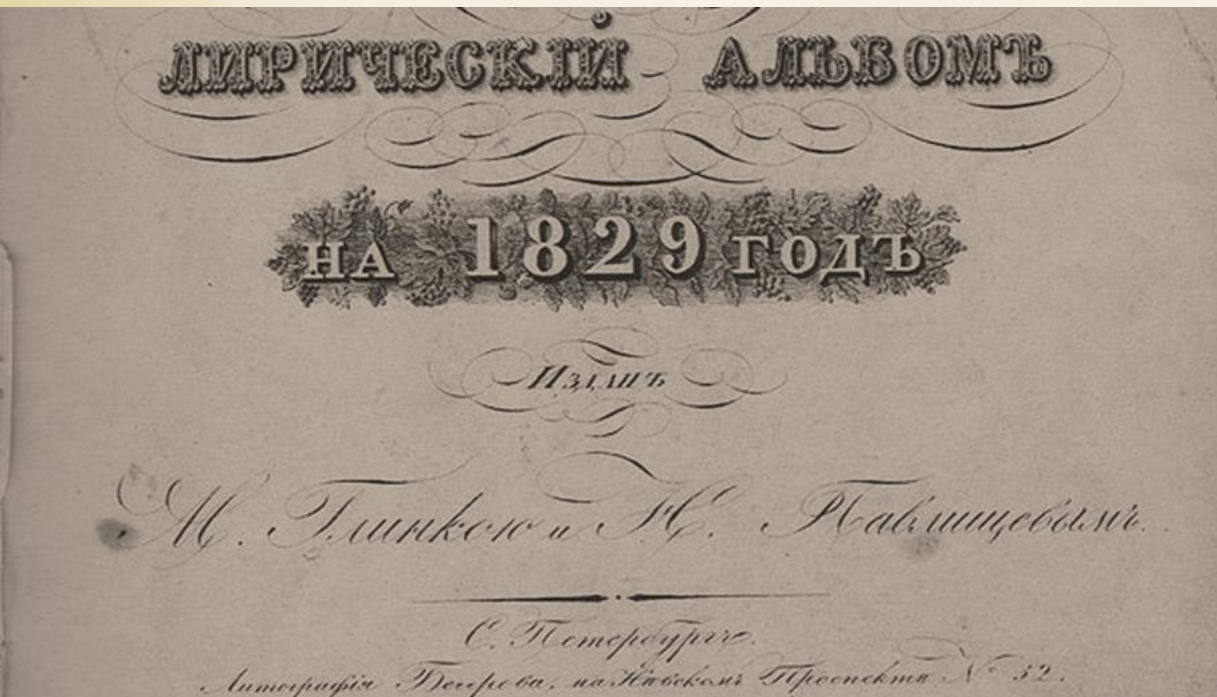 ЛИРИЧЕСКІЙ АЛЬБОМЪ
НА 1829 ГОДЪ
Изданъ
М. Глинкою и Н. Павлищевымъ.
С. Петербургъ.
Литографія Бегрова, на Невскомъ Проспекте № 52.